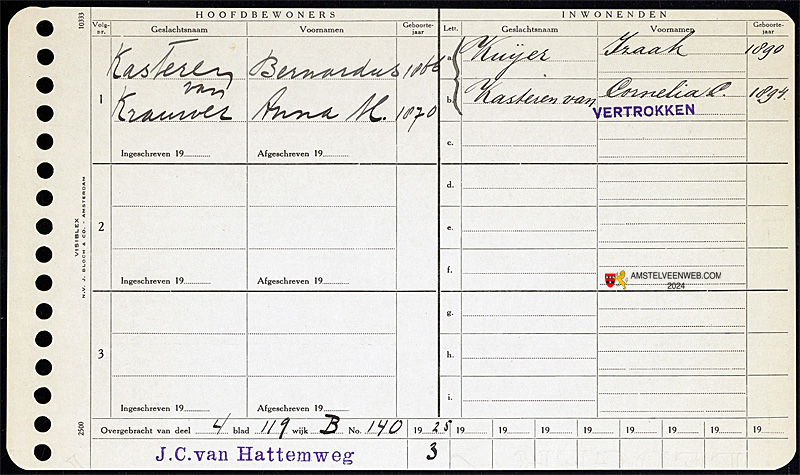 HOOFDBEWONERS
INWONENDEN
Volg-nr. Geslachtsnaam Voornamen Geboorte-jaar
Lett. Geslachtsnaam Voornamen Geboorte-jaar
10333
1 Kasteren van Bernardus 1866
Krauwer Anna M. 1870
Ingeschreven 19 Afgeschreven 19
a. Kuijer Izaak 1890
b. Kasteren van Cornelia C. 1894.
VERTROKKEN
c.
2
Ingeschreven 19 Afgeschreven 19
d.
e.
f.
AMSTELVEENWEB.COM
2024
3
Ingeschreven 19 Afgeschreven 19
g.
h.
i.
VISIBLEX
N.V. J. BLOCH & CO. - AMSTERDAM
2500
Overgebracht van deel 4 blad 119 wijk B No. 140 1925 19 19 19 19 19 19 19 19
J.C. van Hattemweg 3